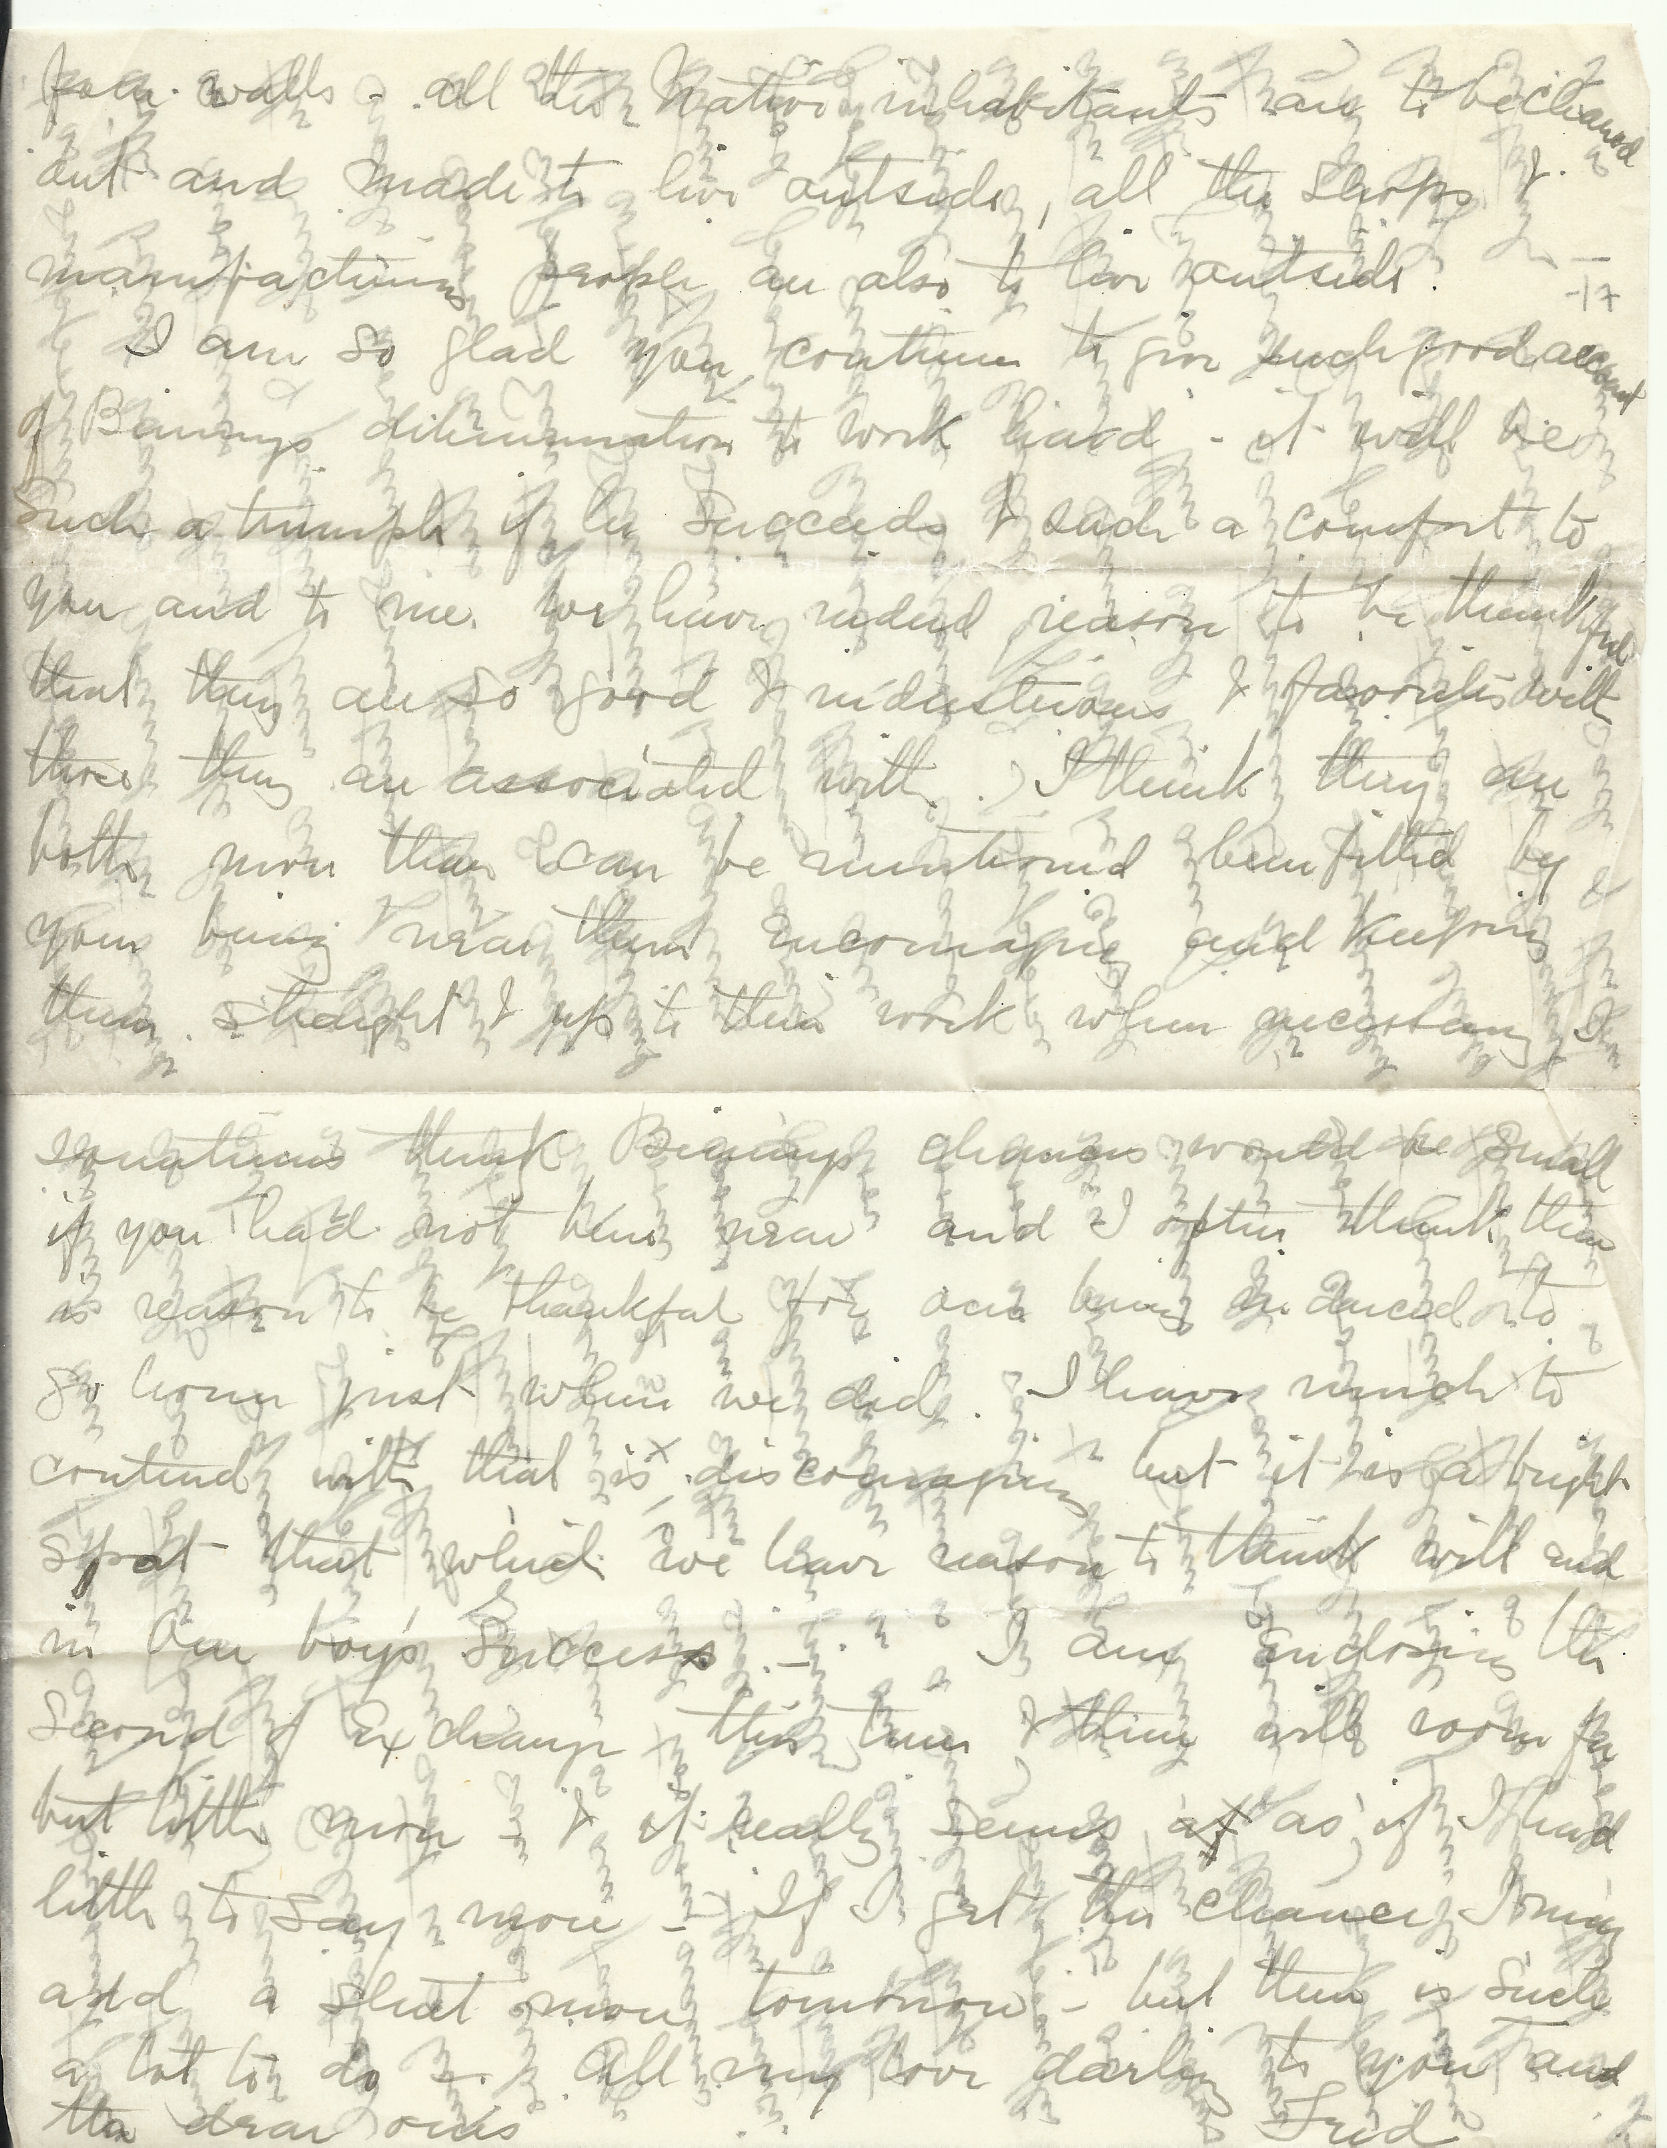 four walls - all the Native inhabitants are to be cleaned
out and made to live outside, all the shops &
manufacturing people are also to live outside.
I am so glad you continue to give such good account
of determination to work hard - it will be
Such a triumph if he Succeeds & such a comfort to
you and to me. We have indeed reason to be thankful
that they are so good & industrious & favorites with
those they are associated with. I think they are
both more than can be mentioned benefitted by
your being near them encouraging and keeping
them straight & up to their work when necessary I
sometimes think chances would be small
if you had not been near and I often think there
is reason to be thankful for our being induced to
go home just when we did. I have much to
contend with that is discouraging but it is a bright
spot that which we have reason to think will end
in our boy's Success - I am enclosing the
Second of Exchange this time & there will room for
but little more - & it really seems as if I had
little to say more - If I get the chance I may
add a sheet more tomorrow - but there is such
a lot to do -. All my love darling to you and
the dear ones Fred